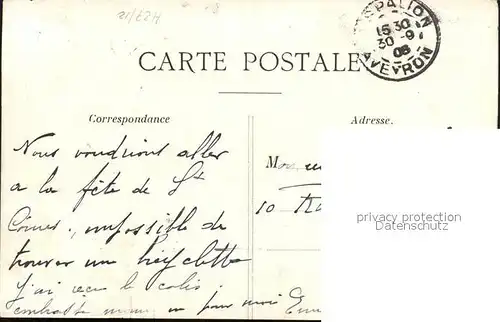 21/624
ESPALION
15 30
30 -9
08
AVEYRON
CARTE POSTALE
Correspondance
Adresse.
Nous voudrions aller
a la fête de St
Comes, impossible de
trouver un
j'ai reçu le colis
embrasse pour moi
M
10
privacy protection
Datenschutz